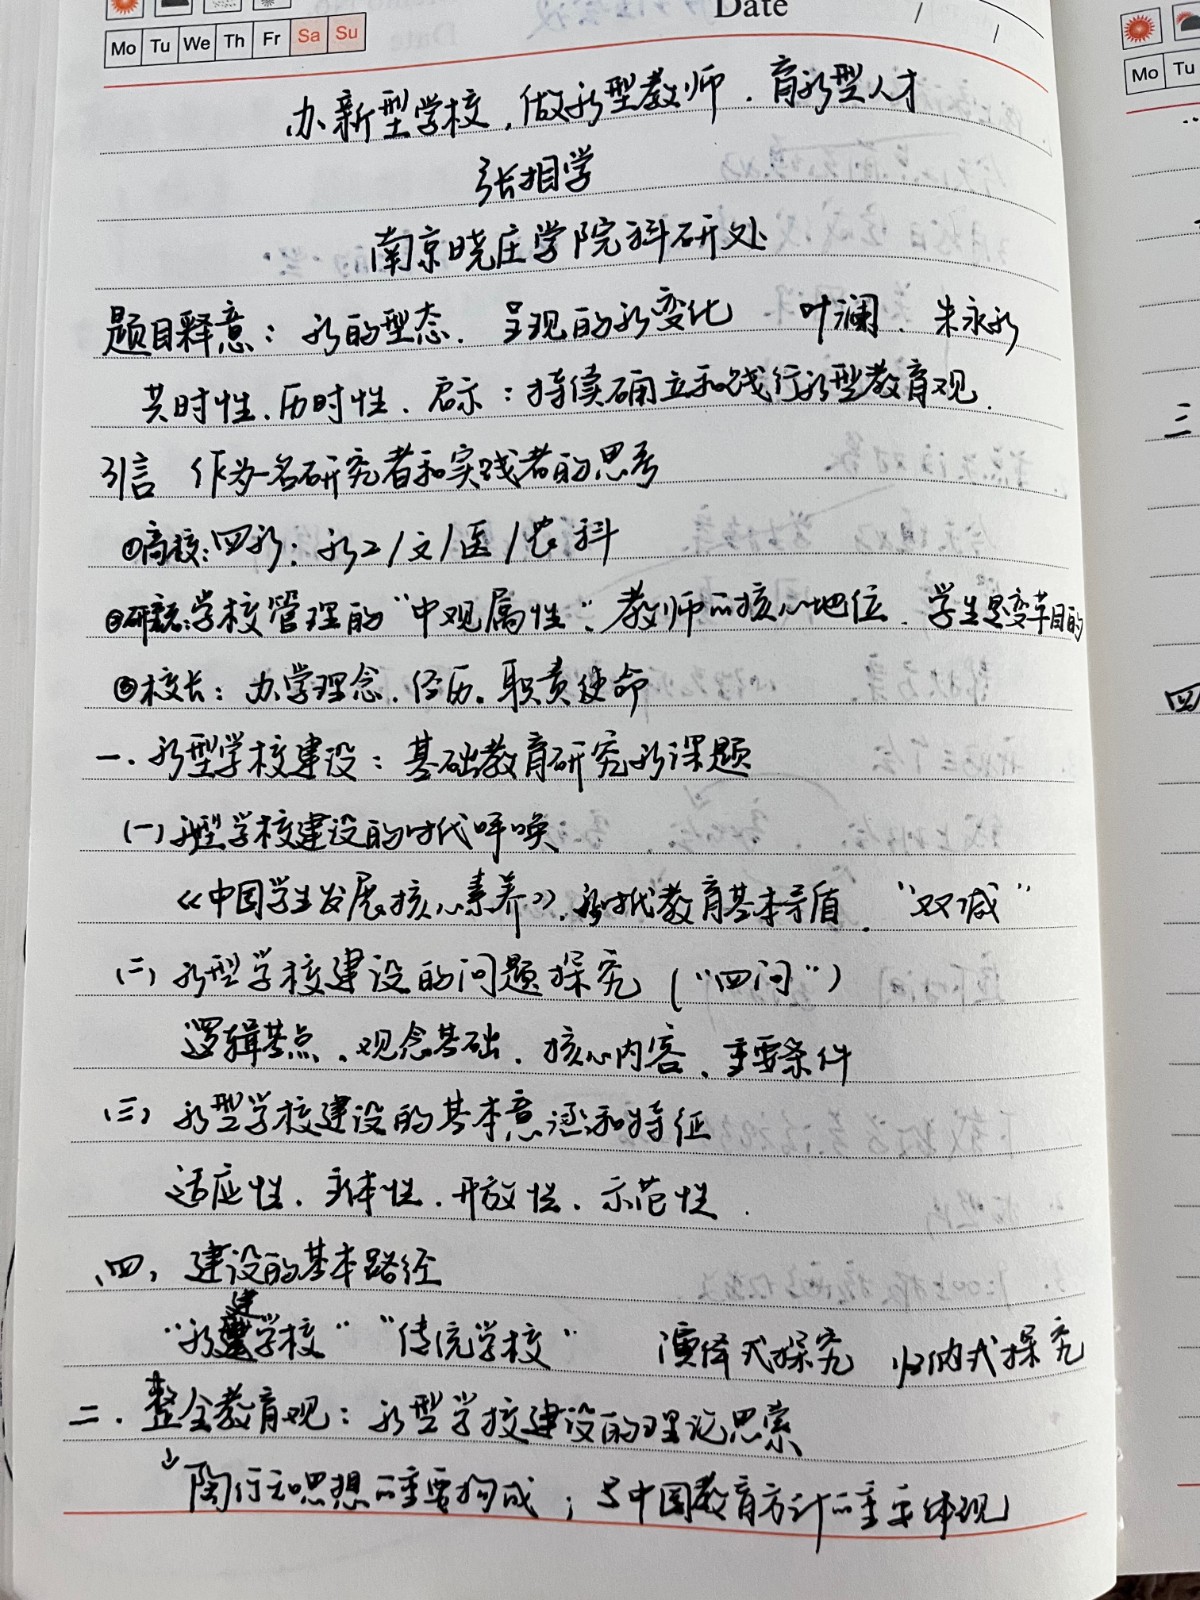 Date
Mo Tu We Th Fr Sa Su
Mo Tu
办新型学校、做新型教师、育新型人才
张相学
南京晓庄学院科研处
题目释意：新的型态、呈现的新变化 叶澜、朱永新
共时性、历时性、启示：持续确立和践行新型教育观、
引言 作为一名研究者和实践者的思考
①高校：四新：新工/文/医/农科
②研究:学校管理的“中观属性”、教师的核心地位、学生是变革目的
③校长：办学理念、经历、职责使命
一、新型学校建设：基础教育研究新课题
(一)新型学校建设的时代呼唤
《中国学生发展核心素养》、新时代教育基本矛盾、“双减”
(二)新型学校建设的问题探究(“四问”)
逻辑基点、观念基础、核心内容、重要条件
(三)新型学校建设的基本意涵和特征
适应性、主体性、开放性、示范性、
(四)建设的基本路径
“新建学校”“传统学校” 演绎式探究 归纳式探究
二、整全教育观：新型学校建设的理论思索
↓陶行知思想的重要构成；与中国教育方针的重要体现
三
四